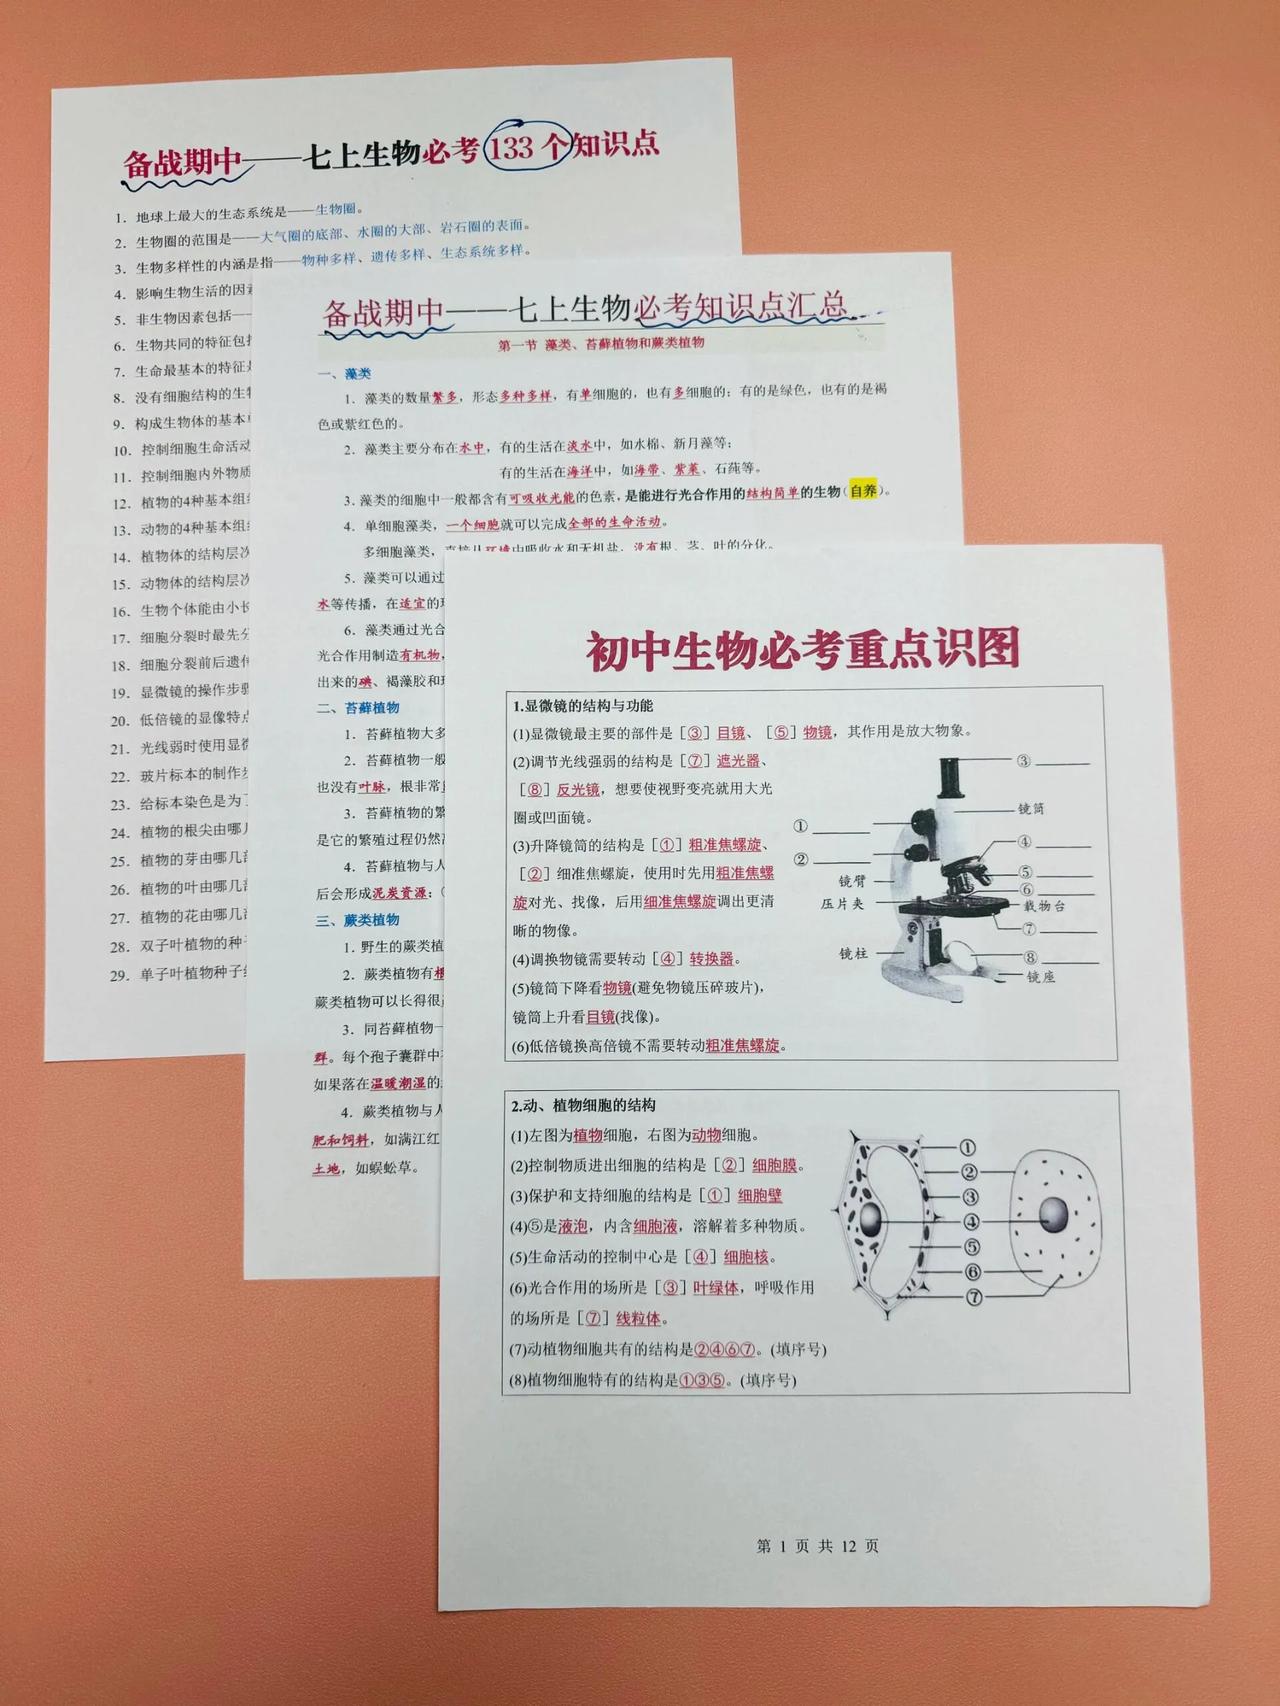 备战期中——七上生物必考133个知识点
1．地球上最大的生态系统是——生物圈。
2．生物圈的范围是——大气圈的底部、水圈的大部、岩石圈的表面。
3．生物多样性的内涵是指——物种多样、遗传多样、生态系统多样。
4．影响生物生活的因
5．非生物因素包括——
6．生物共同的特征包
7．生命最基本的特征
8．没有细胞结构的生
9．构成生物体的基本
10．控制细胞生命活动
11．控制细胞内外物质
12．植物的4种基本组
13．动物的4种基本组
14．植物体的结构层次
15．动物体的结构层次
16．生物个体能由小长
17．细胞分裂时最先分
18．细胞分裂前后遗传
19．显微镜的操作步骤
20．低倍镜的显像特点
21．光线弱时使用显微
22．玻片标本的制作步
23．给标本染色是为了
24．植物的根尖由哪几
25．植物的芽由哪几部
26．植物的叶由哪几部
27．植物的花由哪几部
28．双子叶植物的种子
29．单子叶植物种子结
备战期中——七上生物必考知识点汇总
第一节 藻类、苔藓植物和蕨类植物
一、藻类
1．藻类的数量繁多，形态多种多样，有单细胞的，也有多细胞的；有的是绿色，也有的是褐
色或紫红色的。
2．藻类主要分布在水中，有的生活在淡水中，如水棉、新月藻等；
有的生活在海洋中，如海带、紫菜、石莼等。
3．藻类的细胞中一般都含有可吸收光能的色素，是能进行光合作用的结构简单的生物（自养）。
4．单细胞藻类，一个细胞就可以完成全部的生命活动。
多细胞藻类，直接从环境中吸收水和无机盐，没有根、茎、叶的分化。
5．藻类可以通过
水等传播，在适宜的
6．藻类通过光合
光合作用制造有机物，
出来的碘、褐藻胶和
二、苔藓植物
1．苔藓植物大多
2．苔藓植物一般
也没有叶脉，根非常
3．苔藓植物的繁
是它的繁殖过程仍然
4．苔藓植物与人
后会形成泥炭资源；
三、蕨类植物
1．野生的蕨类植
2．蕨类植物有根
蕨类植物可以长得很
3．同苔藓植物一
群。每个孢子囊群中
如果落在温暖潮湿的
4．蕨类植物与人
肥和饲料，如满江红
土地，如蜈蚣草。
初中生物必考重点识图
1.显微镜的结构与功能
(1)显微镜最主要的部件是［③］目镜、［⑤］物镜，其作用是放大物象。
(2)调节光线强弱的结构是［⑦］遮光器、
［⑧］反光镜，想要使视野变亮就用大光
圈或凹面镜。
(3)升降镜筒的结构是［①］粗准焦螺旋、
［②］细准焦螺旋，使用时先用粗准焦螺
旋对光、找像，后用细准焦螺旋调出更清
晰的物像。
(4)调换物镜需要转动［④］转换器。
(5)镜筒下降看物镜(避免物镜压碎玻片)，
镜筒上升看目镜(找像)。
(6)低倍镜换高倍镜不需要转动粗准焦螺旋。
③
镜筒
①
④
②
⑤
镜臂
⑥
压片夹
载物台
⑦
镜柱
⑧
镜座
2.动、植物细胞的结构
(1)左图为植物细胞，右图为动物细胞。
(2)控制物质进出细胞的结构是［②］细胞膜。
(3)保护和支持细胞的结构是［①］细胞壁
(4)⑤是液泡，内含细胞液，溶解着多种物质。
(5)生命活动的控制中心是［④］细胞核。
(6)光合作用的场所是［③］叶绿体，呼吸作用
的场所是［⑦］线粒体。
(7)动植物细胞共有的结构是②④⑥⑦。(填序号)
(8)植物细胞特有的结构是①③⑤。(填序号)
①
②
③
④
⑤
⑥
⑦
第 1 页 共 12 页